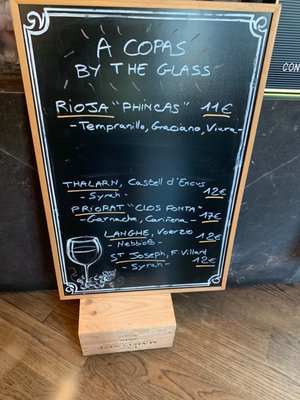 A COPAS
BY THE GLASS
RIOJA "PHINCAS" 11€
- Tempranillo, Graciano, Viura -
THALARN, Castell d'Encus
- Syrah - 12€
PRIORAT "CLOS FONTA"
- Garnache, Cariñena - 17€
LANGHE, Voerzio 12€
- Nebbiolo -
ST JOSEPH, F. Villard
- Syrah - 12€